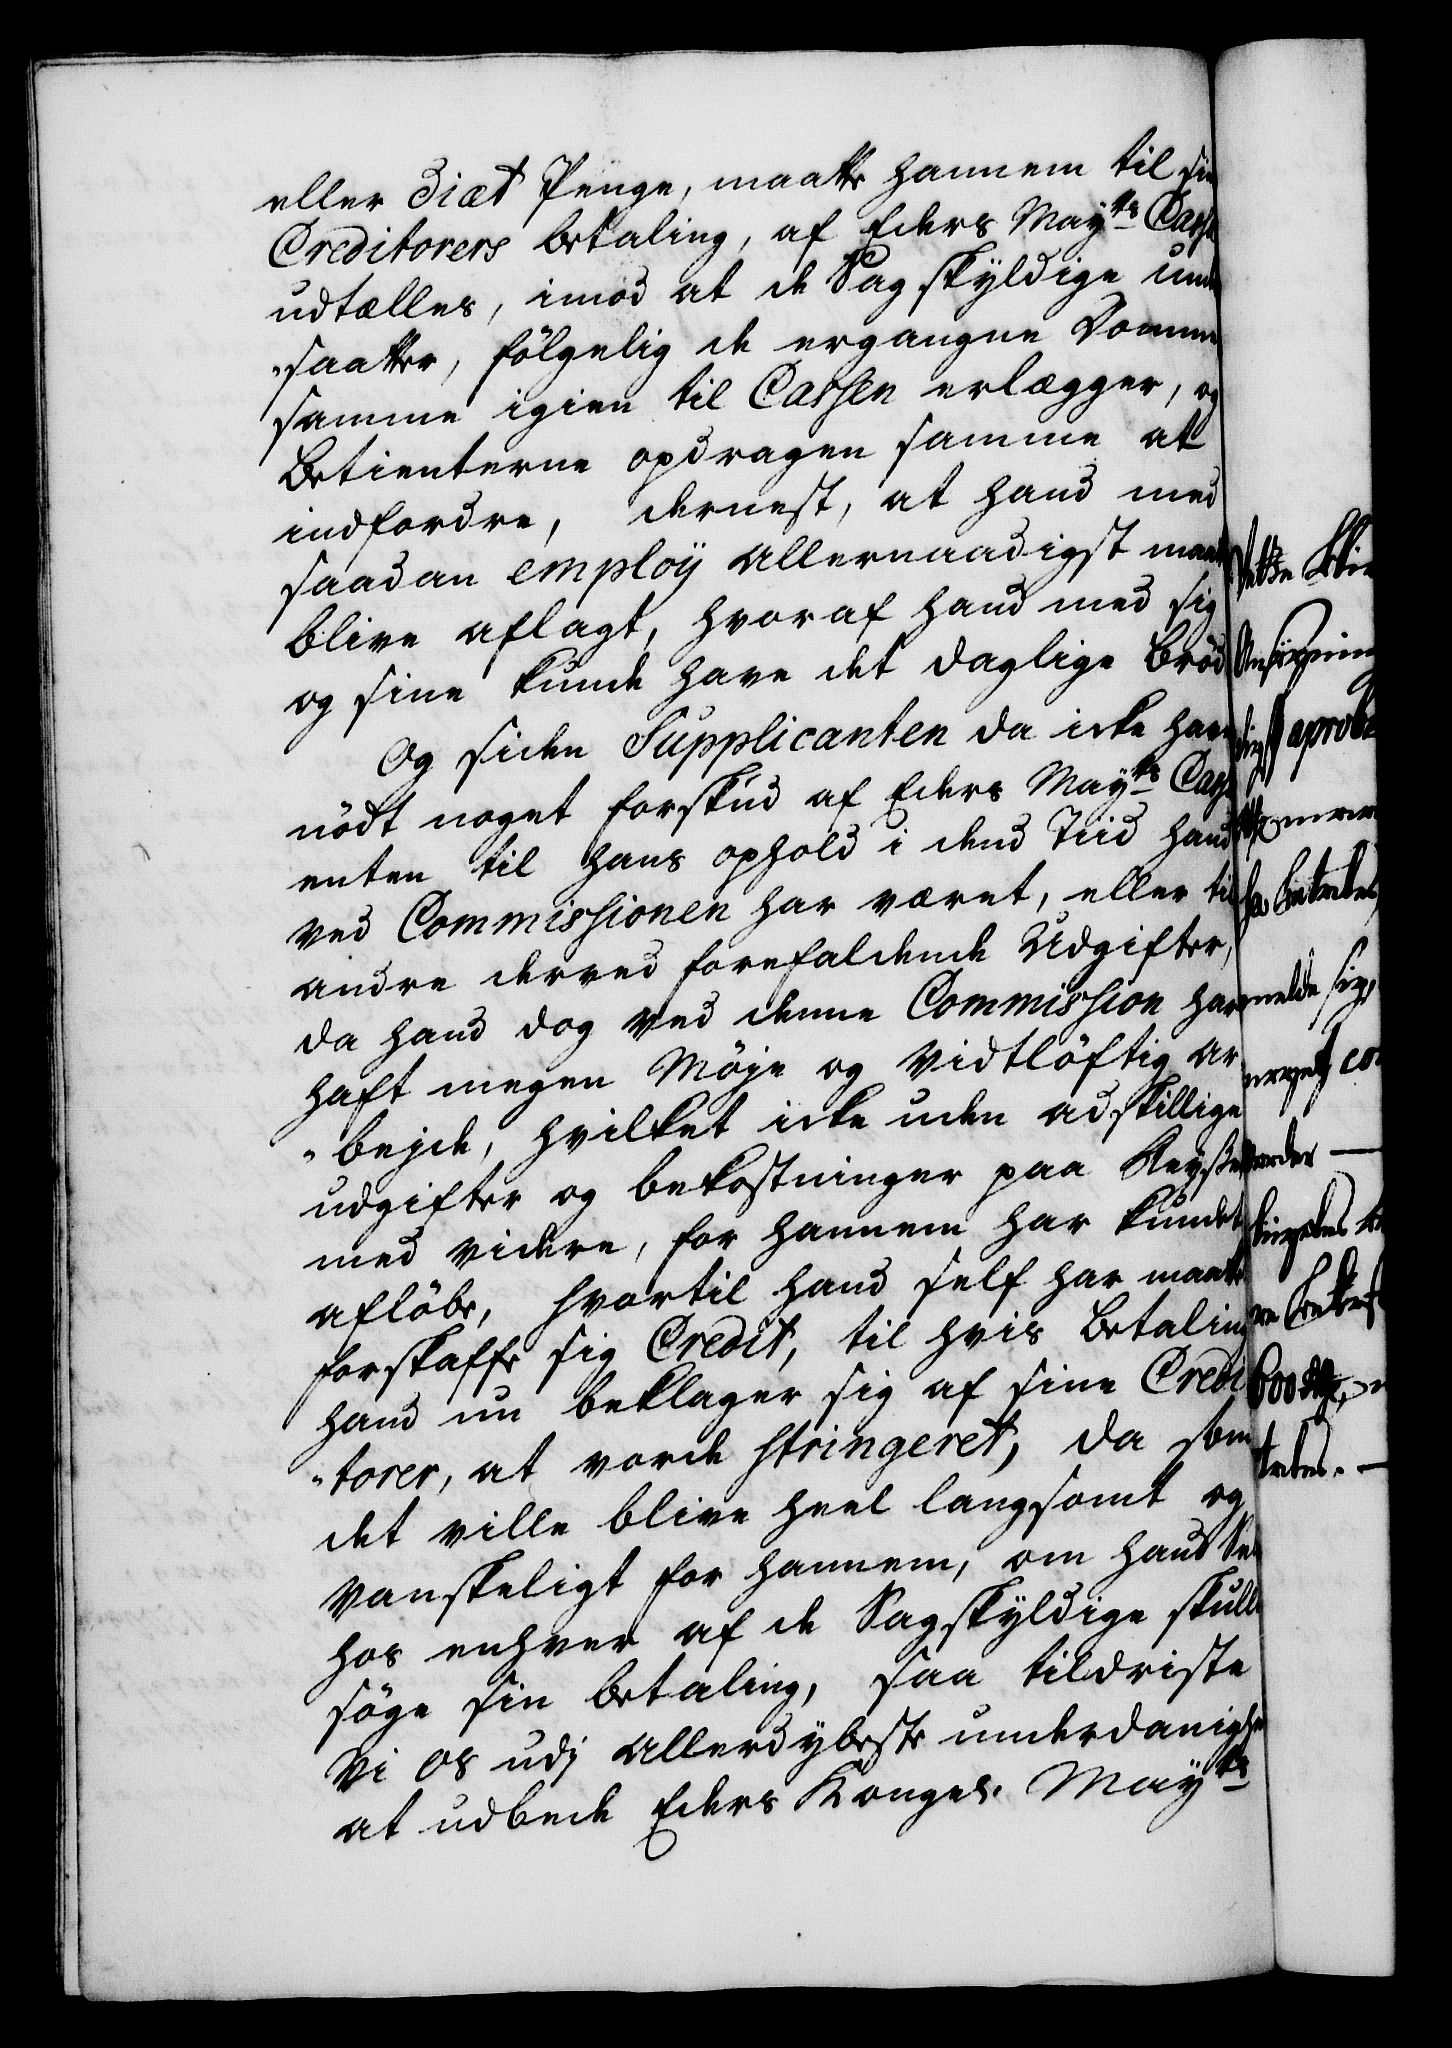 eller Diæt Penge, maatte hannem til sin
Creditorers betaling, af Eders Mayts Cass
udtælles, imod at de Sagskyldige und
"saatter, fölgelig de ergangne Domme
samme igien til Cassen erlægger, og
Betienterne opdragen samme at
indfordre, dernest, at hand med
saadan employ allernaadigst maatte
blive aflagt, hvoraf hand med sig
og sine kunde have det daglige bröd
Og siden Supplicanten da icke har
nödt noget forskud af Eders Mayts Cass
enten til hans ophold i dend Tiid hand
ved Commissionen har været, eller til
andre derved forefaldende Udgifter,
da hand dog ved denne Commission har
haft megen Möje og vidtlöftig ar
"bejde, hvilket icke uden adskillige
udgifter og bekostninger paa Reyser
med videre, for hannem har kundet
aflöbe, hvortil hand self har maatt
forskaffe sig Credit, til hvis betaling
hand nu beklager sig af sine Credi
"torer, at vorde stringeret, da som
det ville blive heel langsomt og
vanskeligt for hannem, om hand
hos enhver af de Sagskyldige skulle
söge sin betaling, saa tildriste
Vi os udj allerdybeste underdanighe
at udbede Eders Konges. Mayts
dette
Ansögning
digst aprobe
melde sig,
600